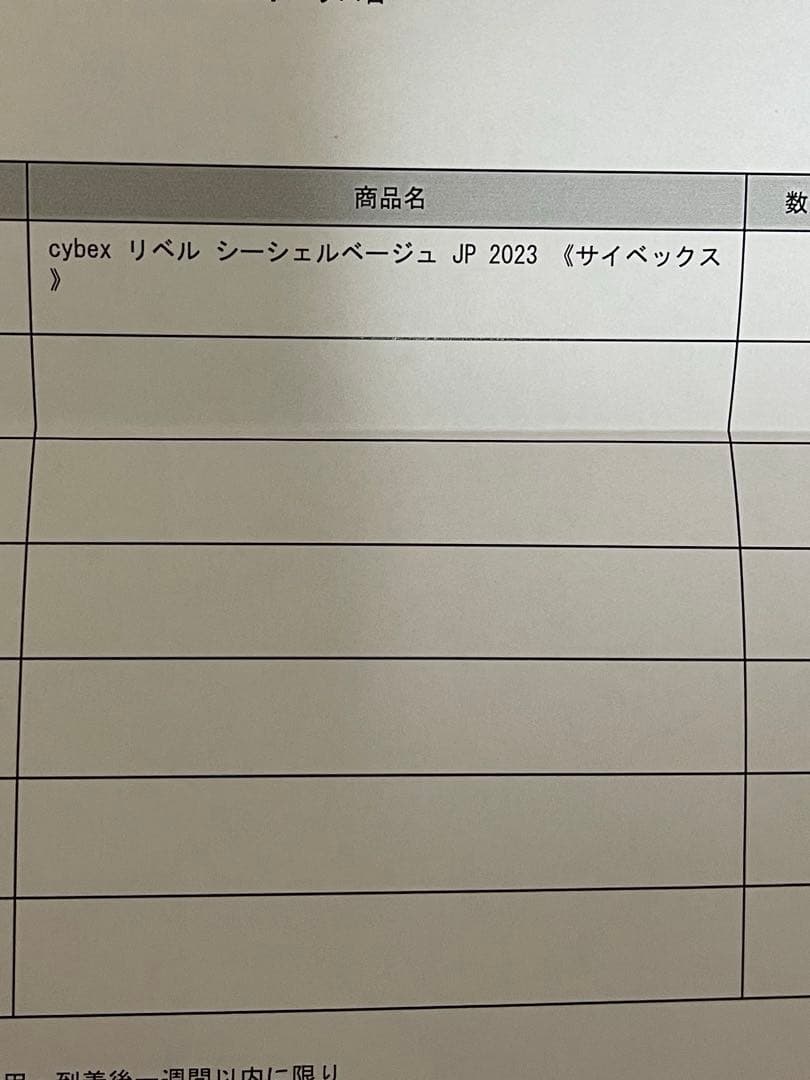 商品名
数
cybex リベル シーシェルベージュ JP 2023 《サイベックス
》
到着後一週間以内に限り